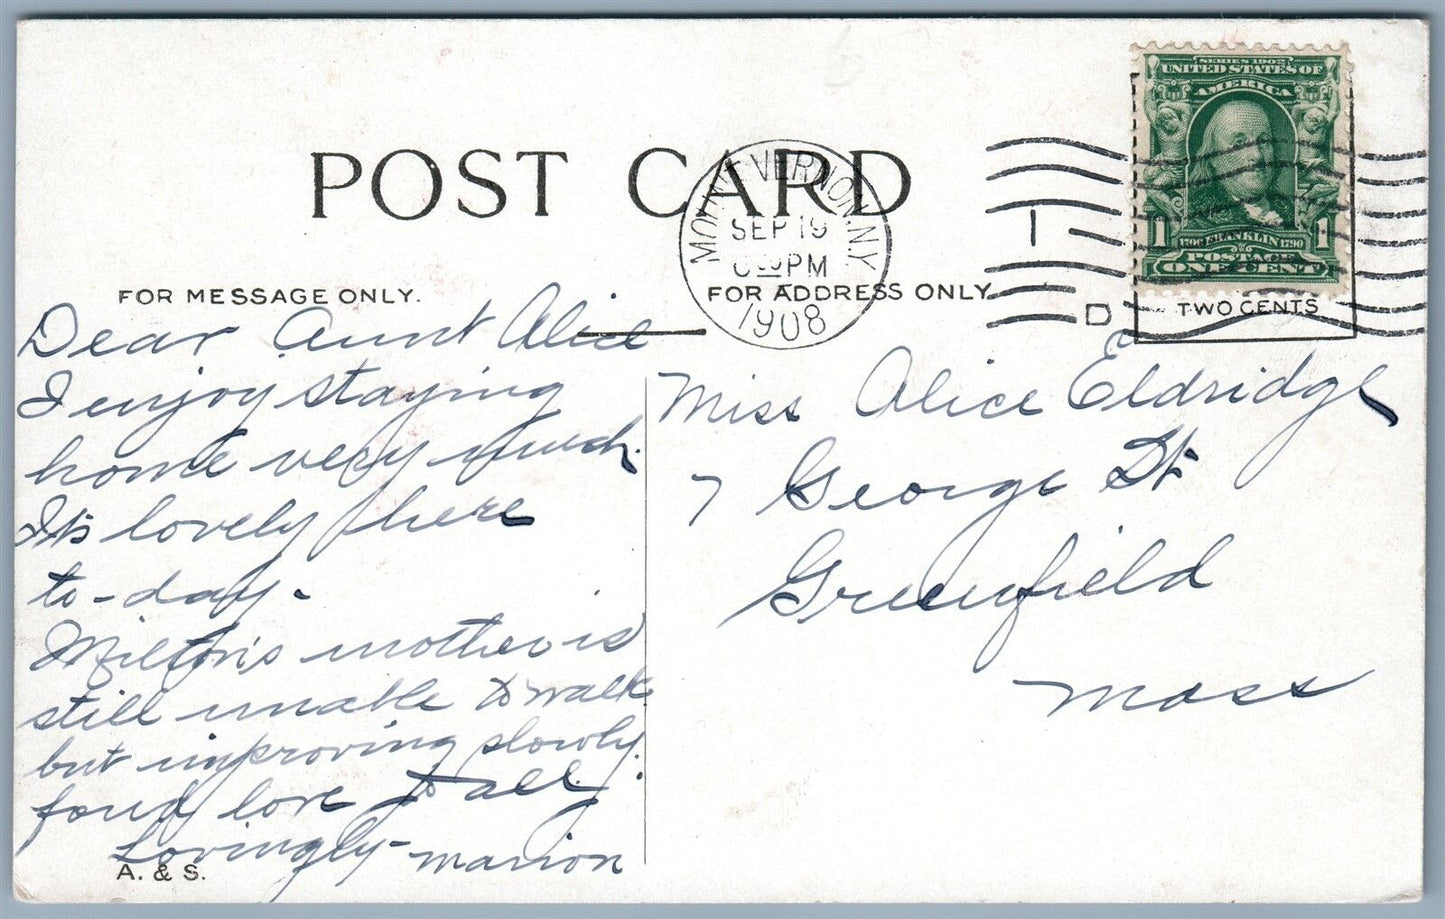 POST CARD
MOUNT VERNON, N.Y.
SEP 19
PM
1908
D
SERIES 1902
UNITED STATES OF
AMERICA
1 1706 FRANKLIN 1790 1
POSTAGE
ONE CENT
TWO CENTS
FOR MESSAGE ONLY.
FOR ADDRESS ONLY
Dear Aunt Alice
I enjoy staying
home very much.
It's lovely here
to-day.
Milton's mother is
still unable to walk
but improving slowly.
fond love to all.
Lovingly - Marion
A. & S.
Miss Alice Eldridge
7 George St.
Greenfield
Mass